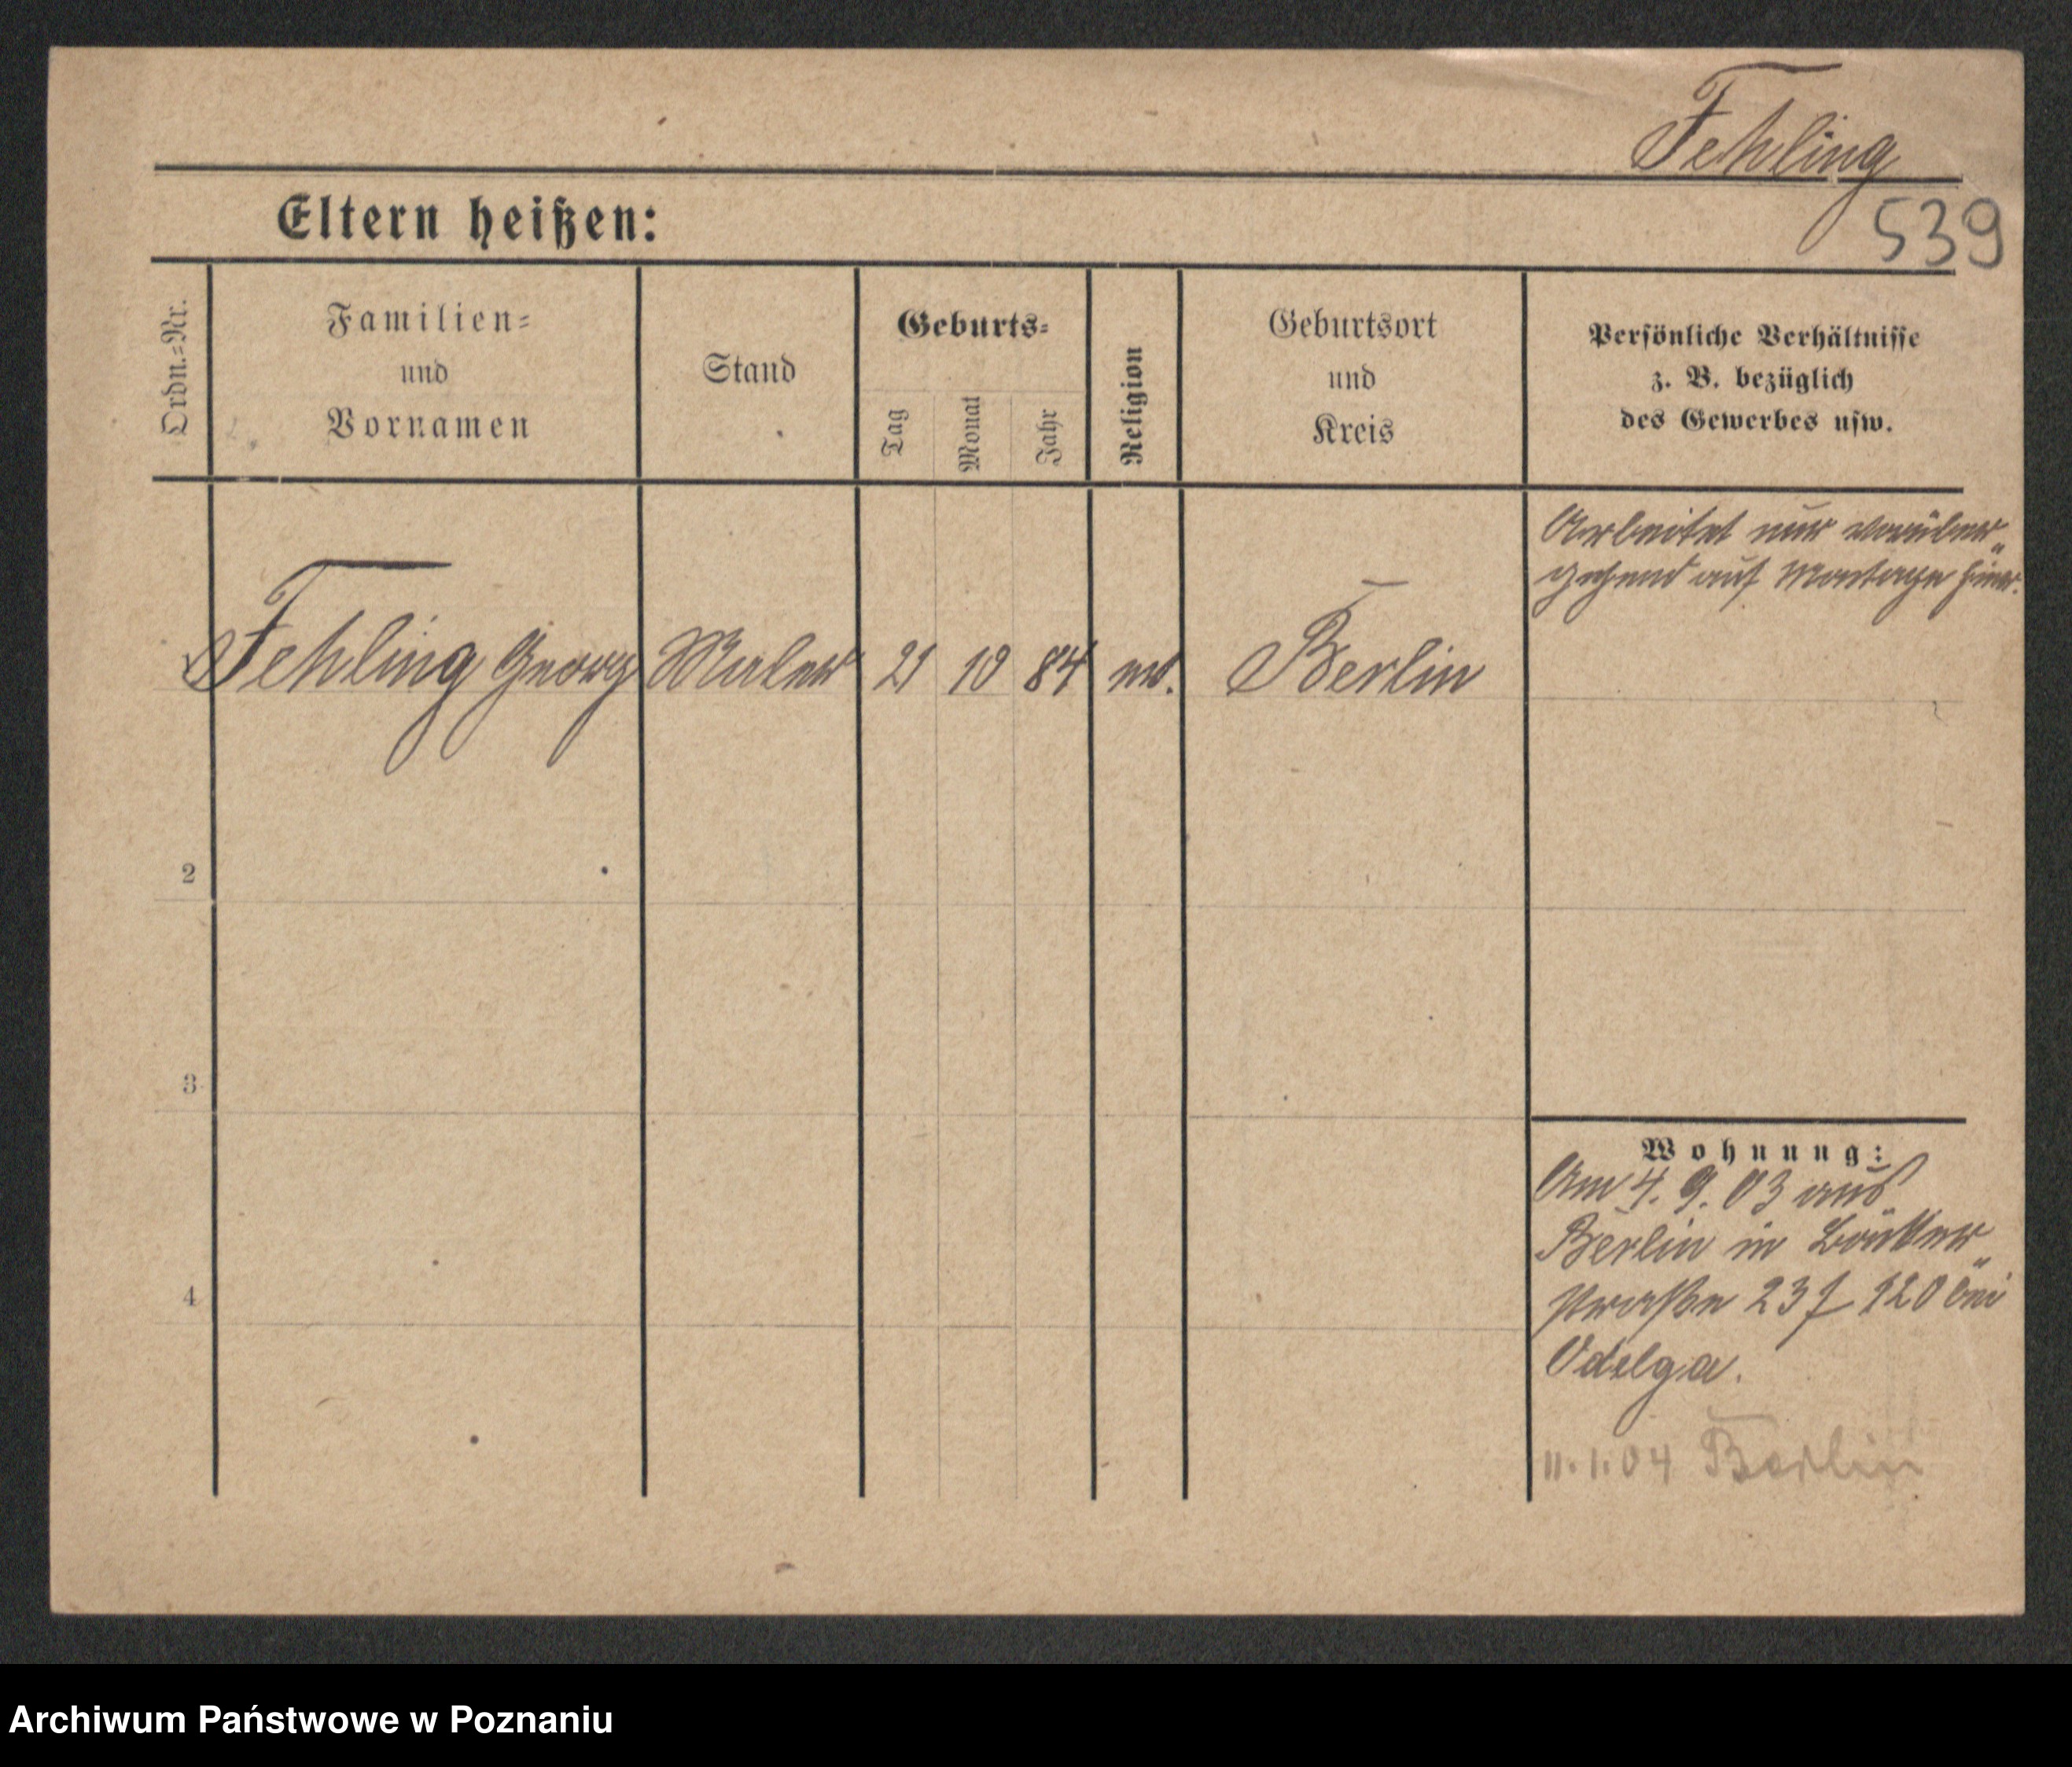 Fehling
539
Eltern heißen:
Ordn.=Nr.
Familien=
und
Vornamen
Stand
Geburts=
Tag
Monat
Jahr
Religion
Geburtsort
und
Kreis
Persönliche Verhältnisse
z. B. bezüglich
des Gewerbes usw.
Arbeitet nur vorüber„
gehend auf Montage hier.
Fehling Georg Maler 21 10 84 ev. Berlin
2
3
4
Wohnung:
Am 4. 9. 03 aus
Berlin in
straße 23 I 120 bei
Odelga.
11.1.04 Berlin
Archiwum Państwowe w Poznaniu